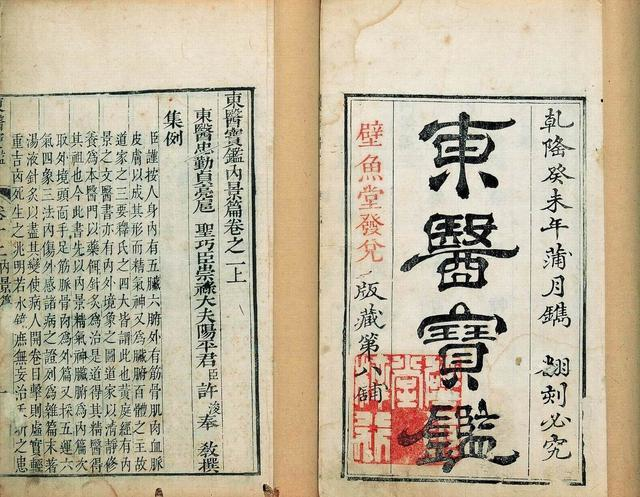 乾隆癸未年蒲月鐫 翻刻必究
東醫寶鑑
壁魚堂發兌 版藏第八鋪
東醫寶鑑內景篇卷之一上
東醫忠勤貞亮扈 聖巧臣崇祿大夫陽平君臣許浚奉 教撰
集例
臣謹按人身內有五臟六腑外有筋骨肌肉血脈
皮膚以成其形而精氣神又為臟腑百體之主故
道家之三要釋氏之四大皆謂此也黃庭經有內
景之文醫書亦有內外境象之圖道家以清靜修
養為本醫門以藥餌針灸為治是道得其精醫得
其粗也今此書先以內景精氣神臟腑為內篇次
取外境頭面手足筋脈骨肉為外篇又採五運六
氣四象三法內傷外感諸病之證列為雜篇末著
湯液針灸以盡其變使病人開卷目擊則虛實輕
重吉凶死生之兆明若水鏡庶無妄治夭折之患